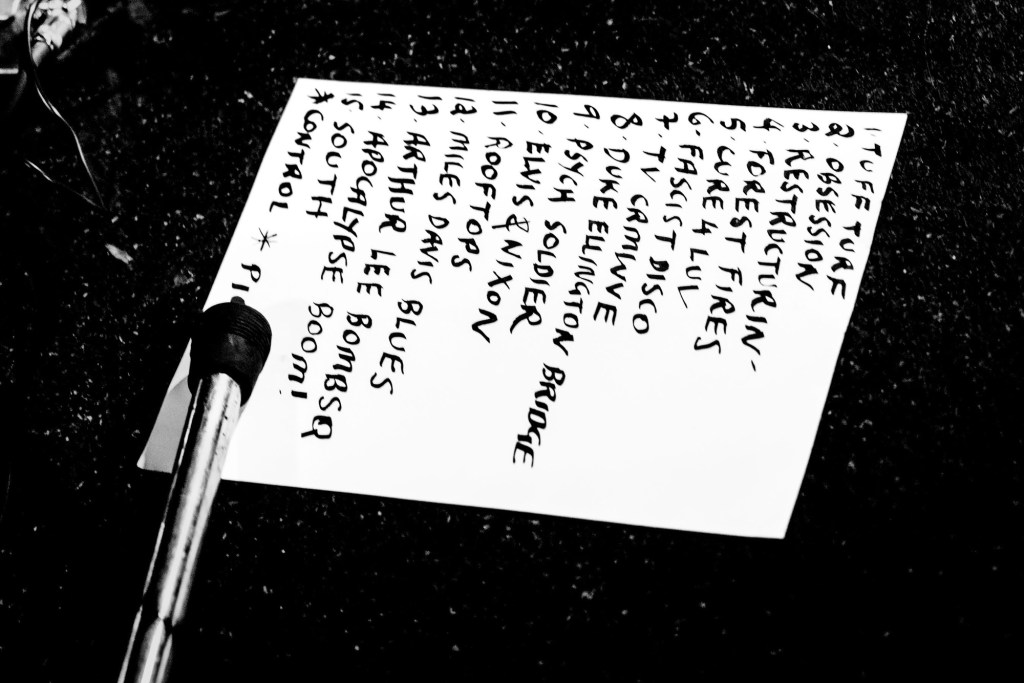 1. TUFF TURF
2. OBSESSION
3. RESTRUCTURIN-
4. FOREST FIRES
5. CURE 4 LUL
6. FASCIST DISCO
7. TV CRMWVE
8. DUKE ELLINGTON BRIDGE
9. PSYCH SOLDIER
10. ELVIS & NIXON
11. ROOFTOPS
12 MILES DAVIS BLUES
13. ARTHUR LEE BOMBSQ
14. APOCALYPSE BOOM!
15 SOUTH
* CONTROL *